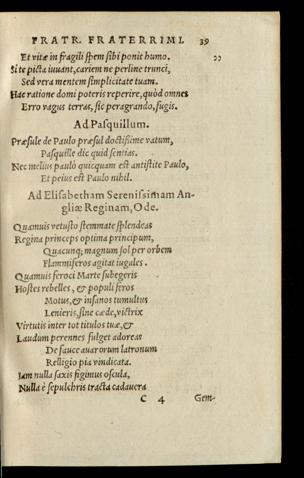 FRATR. FRATERRIMI. 39
Et vitæ in fragili spem sibi ponit humo. ɔɔ
Si te picta iuuant, cariem ne perline trunci,
Sed vera mentem simplicitate tuam.
Hac ratione domi poteris reperire, quòd omnes
Erro vagus terras, sic peragrando, fugis.
Ad Pasquillum.
Præsule de Paulo præsul doctissime vatum,
Pasquille dic quid sentias.
Nec melius pauló quicquam est antistite Paulo,
Et peius est Paulo nihil.
Ad Elisabetham Serenissimam An-
gliæ Reginam, Ode.
Quamuis vetusto stemmate splendeas
Regina princeps optima principum,
Quacunq; magnum sol per orbem
Flammiferos agitat iugales.
Quamuis feroci Marte subegeris
Hostes rebelles, & populi feros
Motus, & insanos tumultus
Lenieris, sine cæde, victrix
Virtutis inter tot titulos tuæ, &
Laudum perennes fulget adoreas
De fauce auarorum latronum
Relligio pia vindicata.
Iam nulla saxis figimus oscula,
Nulla è sepulchris tracta cadauera
C 4 Gem-